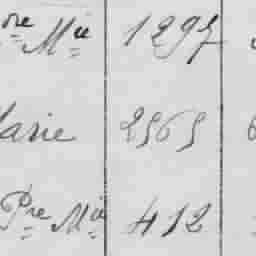 re Mie 1297
arie 2565
Pre Mie 412